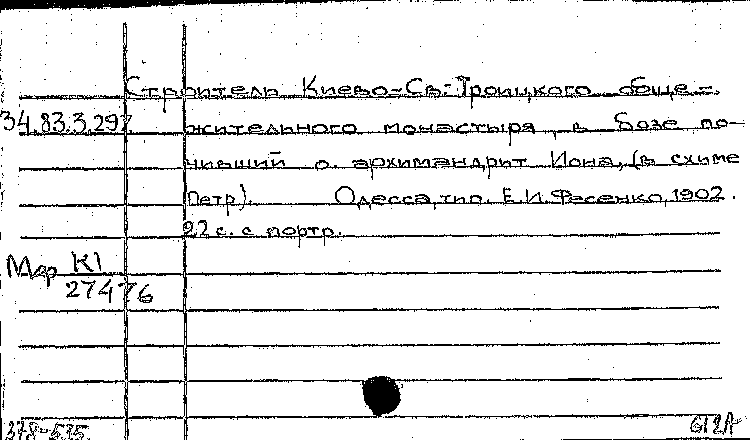 Строитель Киево-Св.-Троицкого обще-
34.83.3.297 жительного монастыря, в Бозе по-
чивший о. архимандрит Иона, (в схиме
Петр). Одесса, тип. Е.И.Фесенко, 1902.
22 с. с портр.
Мдр К1
27476
378-535
612А